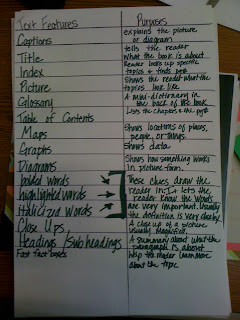 Text Features
Purposes
Captions
explains the picture
or diagram
Title
tells the reader
what the book is about
Index
Reader looks up specific
topics & finds page
Picture
Shows the reader what the
topics look like
Glossary
A mini-dictionary in
the back of the book
Table of Contents
Lists the Chapters & the page
Maps
Shows locations of places,
people, or things.
Graphs
Shows data
Diagrams
Shows how something works
in picture form.
bolded words
highlighted words
Italicized Words
These clues draw the
reader in. It lets the
reader know the words
are very important. Usually
the definition is very close by
Close Ups
A close up of a picture
Usually magnified.
Headings / Sub headings
A summary about what the
paragraph is about.
Fast fact boxes
help the reader learn more
about the topic